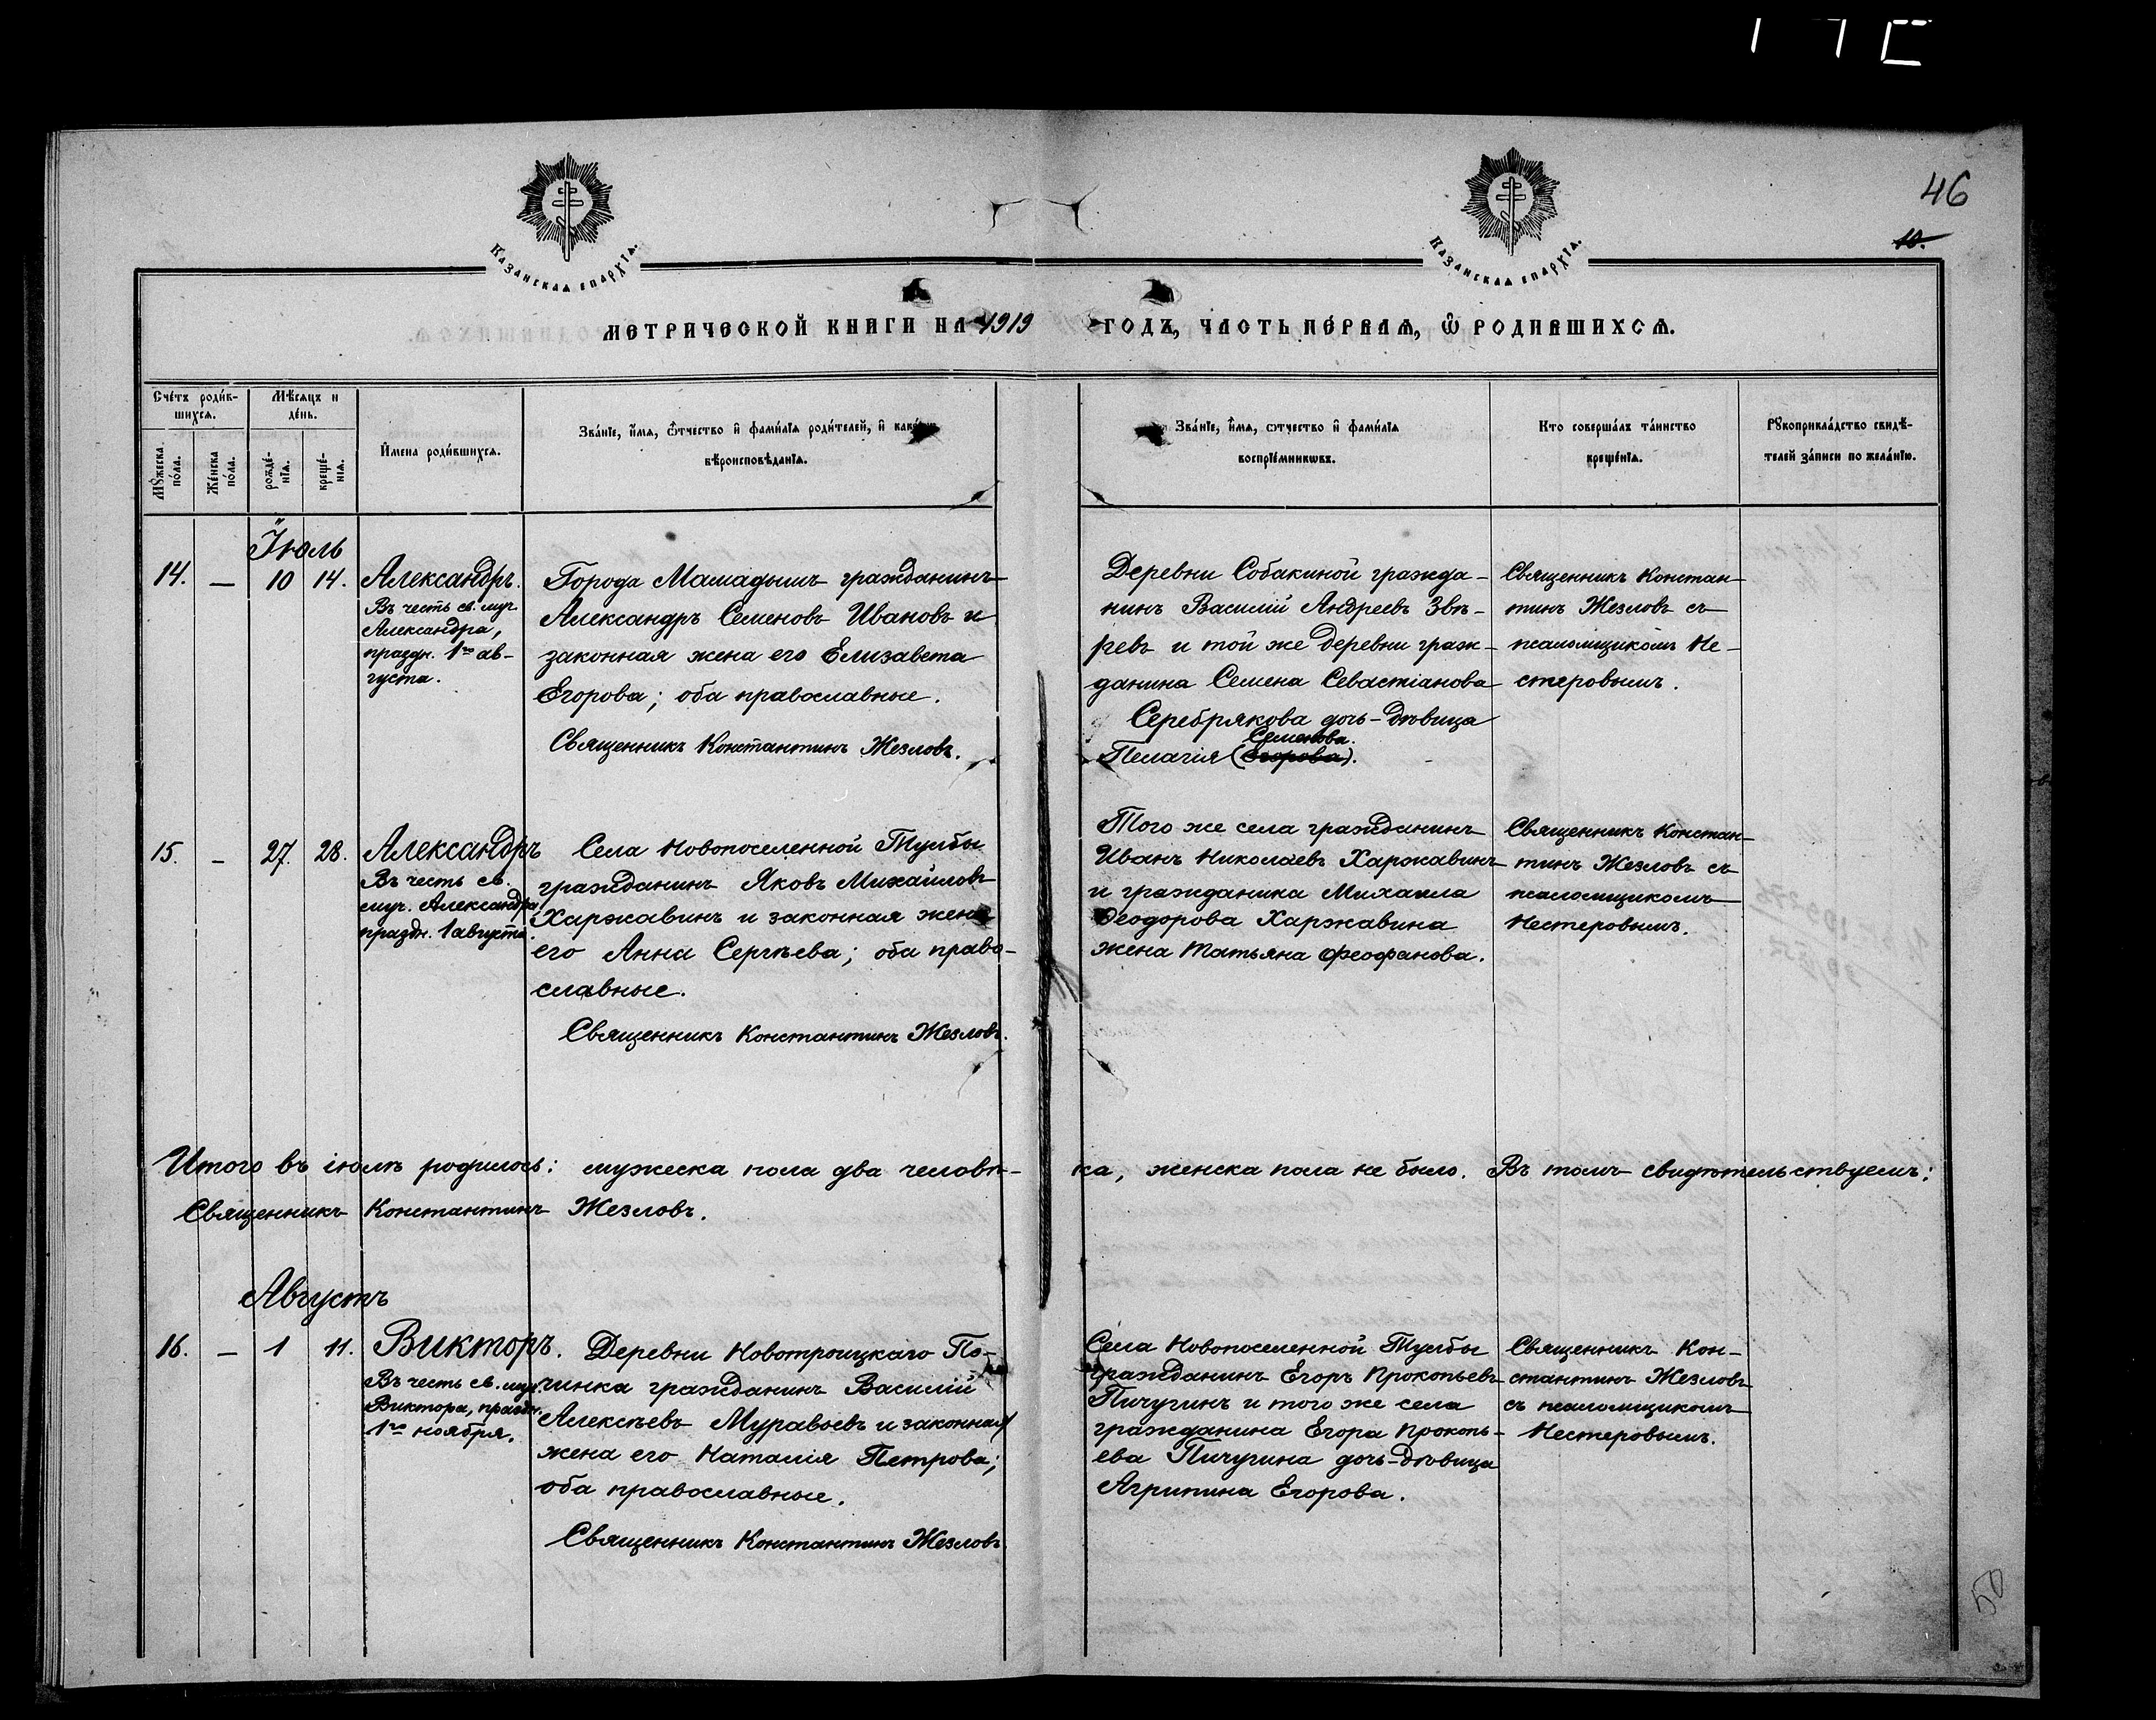 46
10.
Казанская епархїѧ.
Казанская епархїѧ.
МЕТРИЧЕСКОЙ КНИГИ НА 1919 ГОДЪ, ЧАСТЬ ПЕ́РВАѦ, Ѽ РОДИВШИХСѦ.
Сче́тъ роди́в-
шихсѧ.
Мꙋ́жеска по́ла.
Же́нска по́ла.
Мѣ́сѧцъ и
де́нь.
рожде́-
нїѧ.
креще́-
нїѧ.
И҆мена роди́вшихсѧ.
Зва́нїе, и҆́мѧ, ѻ҆́тчество и҆ фами́лїѧ роди́телей, и҆
вѣроисповѣ́данїѧ.
Зва́нїе, и҆́мѧ, ѻтчество и҆ фами́лїѧ
воспрїе́мникѡвъ.
Кто соверша́лъ та́инство
креще́нїѧ.
Рꙋкоприкла́дство свидѣ́-
телей за́писи по жела́нїю.
Іюль
14. — 10 14. Александръ.
Въ честь св. муч.
Александра,
праздн. 1го ав-
густа.
Города Мамадышъ гражданинъ
Александръ Семеновъ Ивановъ и
законная жена его Елизавета
Егорова; оба православные.
Священникъ Константинъ Жезловъ.
Деревни Собакиной гражда-
нинъ Василій Андреевъ Звѣ-
ревъ и той же деревни граж-
данина Семена Севастіанова
Серебрякова дочь-дѣвица
Семенова.
Пелагія (Егорова).
Священникъ Констан-
тинъ Жезловъ съ
псаломщикомъ Не-
стеровымъ.
15. — 27. 28. Александръ
Въ честь св.
муч. Александра,
праздн. 1 августа.
Села Новопоселенной Тумбы
гражданинъ Яковъ Михайловъ
Харжавинъ и законная жена
его Анна Сергѣева; оба право-
славные.
Священникъ Константинъ Жезловъ.
Того же села гражданинъ
Иванъ Николаевъ Харжавинъ
и гражданина Михаила
Ѳеодорова Харжавина
жена Татьяна Феофанова.
Священникъ Констан-
тинъ Жезловъ съ
псаломщикомъ
Нестеровымъ.
Итого въ іюлѣ родилось: мужеска пола два человѣ-ка, женска пола не было. Въ томъ свидѣтельствуемъ:
Священникъ Константинъ Жезловъ.
Августъ
16. — 1 11. Викторъ.
Въ честь св. муч.
Виктора, праздн.
1го ноября.
Деревни Новотроицкаго По-
чинка гражданинъ Василій
Алексѣевъ Муравьевъ и законная
жена его Наталія Петрова;
оба православные.
Священникъ Константинъ Жезловъ
Села Новопоселенной Тумбы
гражданинъ Егоръ Прокопьевъ
Пичугинъ и того же села
гражданина Егора Прокопь-
ева Пичугина дочь-дѣвица
Агрипина Егорова.
Священникъ Кон-
стантинъ Жезловъ
съ псаломщикомъ
Нестеровымъ.
50